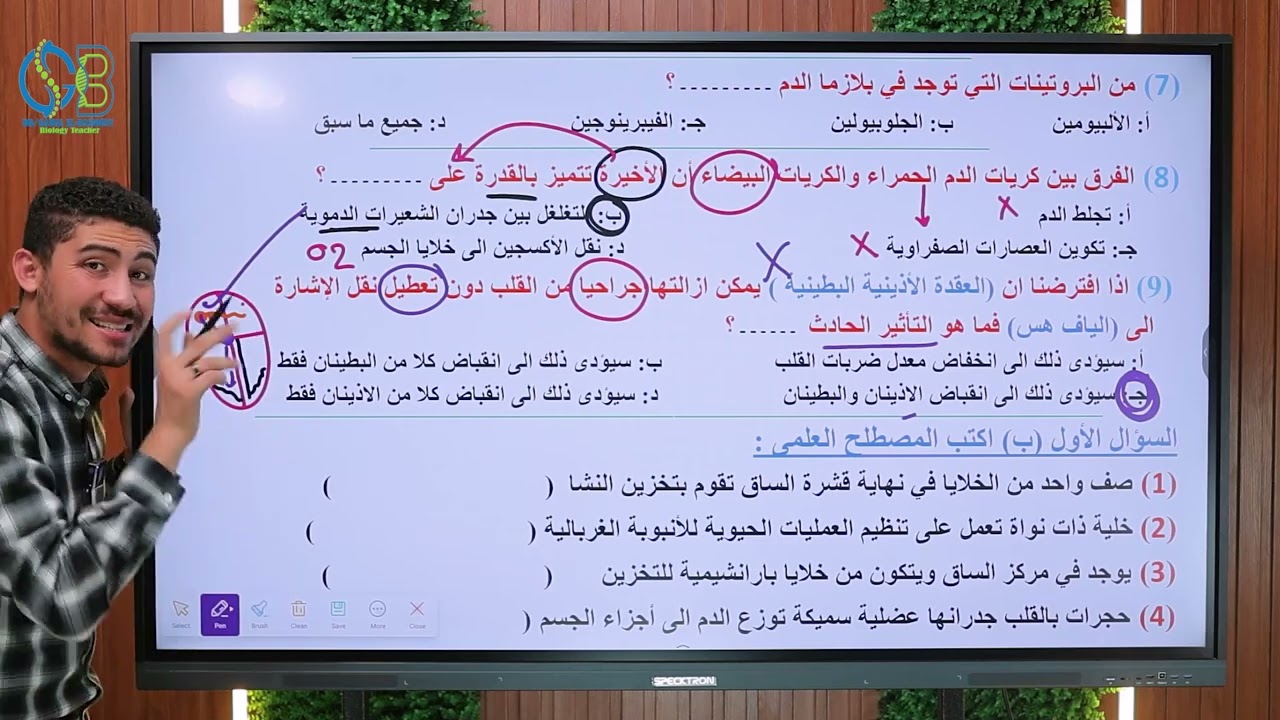 B
Biology Teacher
(7) من البروتينات التي توجد في بلازما الدم --------- ؟
أ: الألبيومين ب: الجلوبيولين جـ: الفيبرينوجين د: جميع ما سبق
(8) الفرق بين كريات الدم الحمراء والكريات البيضاء أن الأخيرة تتميز بالقدرة على --------- ؟
أ: تجلط الدم X ب: التغلغل بين جدران الشعيرات الدموية
جـ: تكوين العصارات الصفراوية X د: نقل الأكسجين الى خلايا الجسم O2
(9) اذا افترضنا ان (العقدة الأذينية البطينية) يمكن ازالتها جراحيا من القلب دون تعطيل نقل الإشارة
الى (الياف هس) فما هو التأثير الحادث ------ ؟
أ: سيؤدى ذلك الى انخفاض معدل ضربات القلب ب: سيؤدى ذلك الى انقباض كلا من البطينان فقط
جـ: سيؤدى ذلك الى انقباض الاذينان والبطينان د: سيؤدى ذلك الى انقباض كلا من الاذينان فقط
السؤال الأول (ب) اكتب المصطلح العلمى :
(1) صف واحد من الخلايا في نهاية قشرة الساق تقوم بتخزين النشا ( )
(2) خلية ذات نواة تعمل على تنظيم العمليات الحيوية للأنبوبة الغربالية ( )
(3) يوجد في مركز الساق ويتكون من خلايا بارانشيمية للتخزين ( )
(4) حجرات بالقلب جدرانها عضلية سميكة توزع الدم الى أجزاء الجسم (
Select Pen Brush Clean Save More Close
SPECKTRON